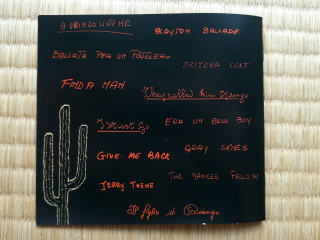 A GRINGO LIKE ME
CLAYTON BALLADE
BALLATA PER UN PISTOLERO
ARIZONA COLT
FIND A MAN
They called him Django
I Must Go
ERA UN BOLD BOY
GIVE ME BACK
GRAY SKIES
JERRY THEME
THE YANKEE FELLOW
Il figlio di Django